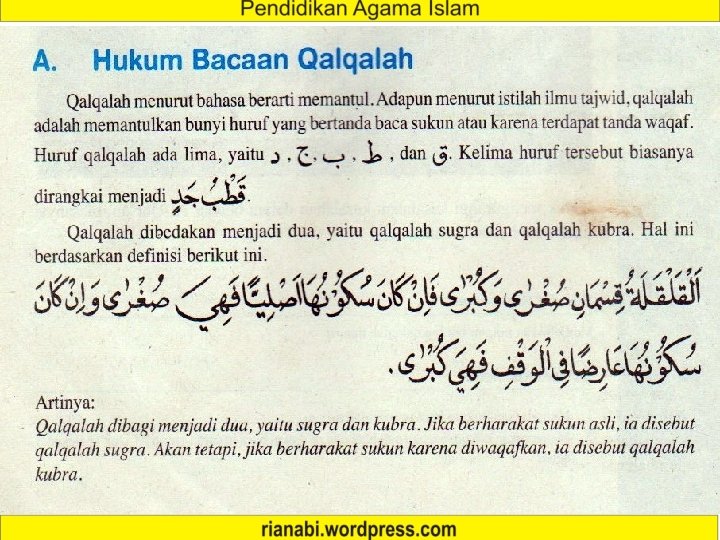 Pendidikan Agama Islam
A. Hukum Bacaan Qalqalah
Qalqalah menurut bahasa berarti memantul. Adapun menurut istilah ilmu tajwid, qalqalah
adalah memantulkan bunyi huruf yang bertanda baca sukun atau karena terdapat tanda waqaf.
Huruf qalqalah ada lima, yaitu د , ج , ب , ط , dan ق. Kelima huruf tersebut biasanya
dirangkai menjadi قَطْبُ جَدٍ.
Qalqalah dibedakan menjadi dua, yaitu qalqalah sugra dan qalqalah kubra. Hal ini
berdasarkan definisi berikut ini.
اَلْقَلْقَلَةُ قِسْمَانِ صُغْرٰى وَكُبْرٰى فَاِنْ كَانَ سُكُوْنُهَا اَصْلِيًّا فَهِيَ صُغْرٰى وَاِنْ كَانَ
سُكُوْنُهَا عَارِضًا فِى الْوَقْفِ فَهِيَ كُبْرٰى.
Artinya:
Qalqalah dibagi menjadi dua, yaitu sugra dan kubra. Jika berharakat sukun asli, ia disebut
qalqalah sugra. Akan tetapi, jika berharakat sukun karena diwaqafkan, ia disebut qalqalah
kubra.
rianabi.wordpress.com